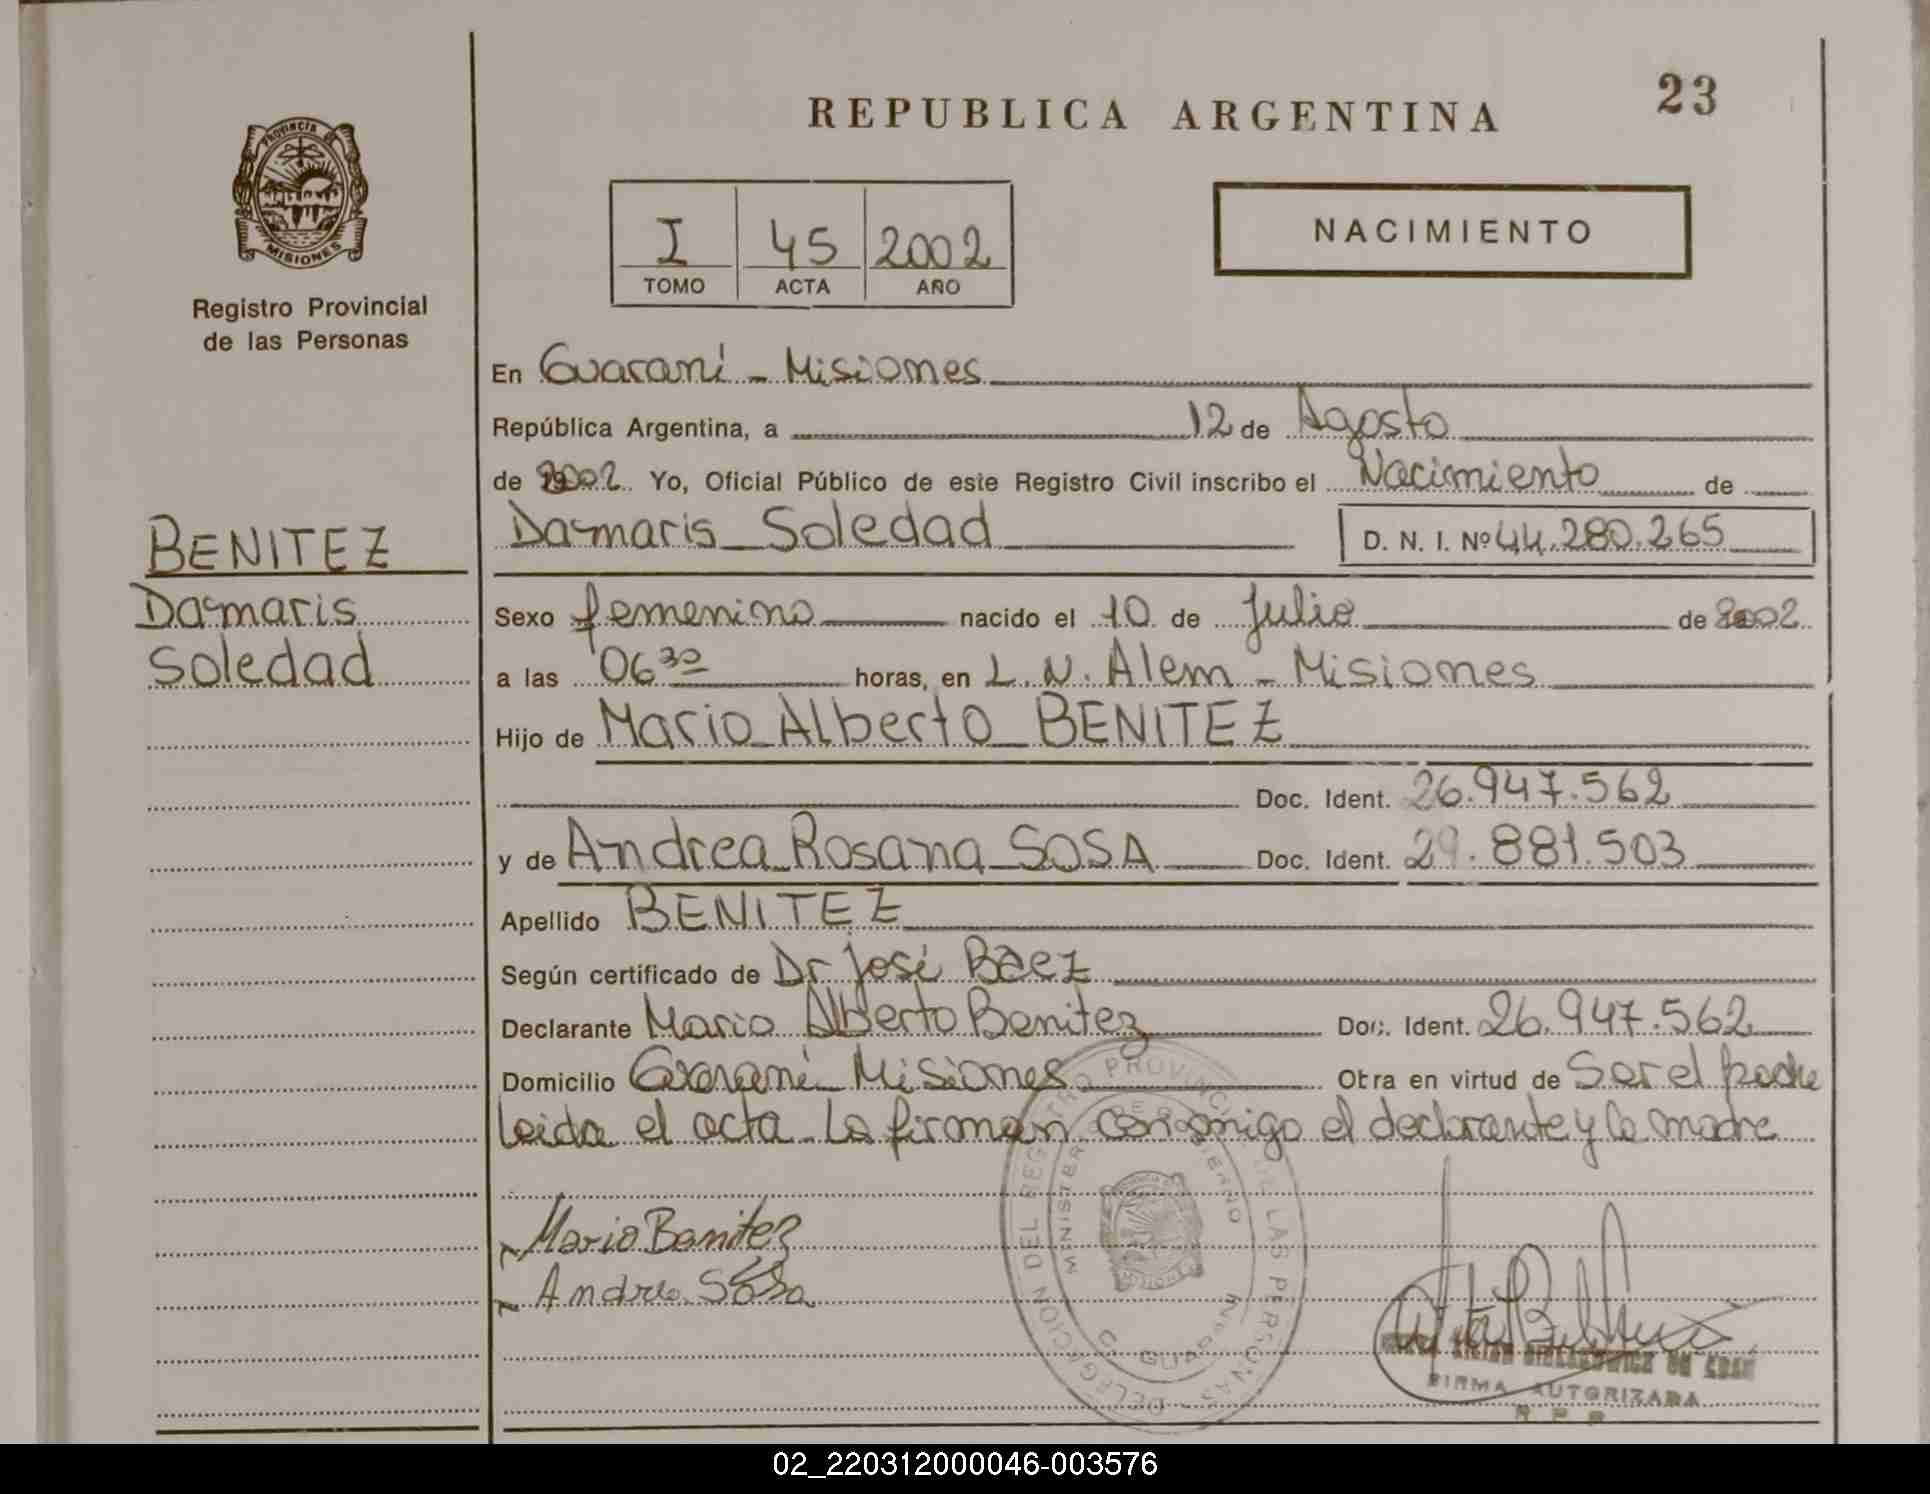 REPUBLICA ARGENTINA
23
PROVINCIA DE
MISIONES
Registro Provincial
de las Personas
I 45 2002
TOMO ACTA AÑO
NACIMIENTO
En Guaraní - Misiones
República Argentina, a 12 de Agosto
de 2002 Yo, Oficial Público de este Registro Civil inscribo el Nacimiento de
Damaris Soledad D. N. I. Nº 44.280.265
BENITEZ
Damaris
Soledad
Sexo femenino nacido el 10 de Julio de 2002
a las 06 30 horas, en L. N. Alem - Misiones
Hijo de Mario Alberto BENITEZ
Doc. Ident. 26.947.562
y de Andrea Rosana SOSA Doc. Ident. 29.881.503
Apellido BENITEZ
Según certificado de Dr José Baez
Declarante Mario Alberto Benitez Doc. Ident. 26.947.562
Domicilio Guaraní Misiones Obra en virtud de Ser el padre
leida el acta La firman conmigo el declarante y la madre
Mario Benitez
Andrea Sosa
DELEGACION DEL REGISTRO PROVINCIAL DE LAS PERSONAS
MINISTERIO DE GOBIERNO
GUARANI
FIRMA AUTORIZADA
R P P
02_220312000046-003576